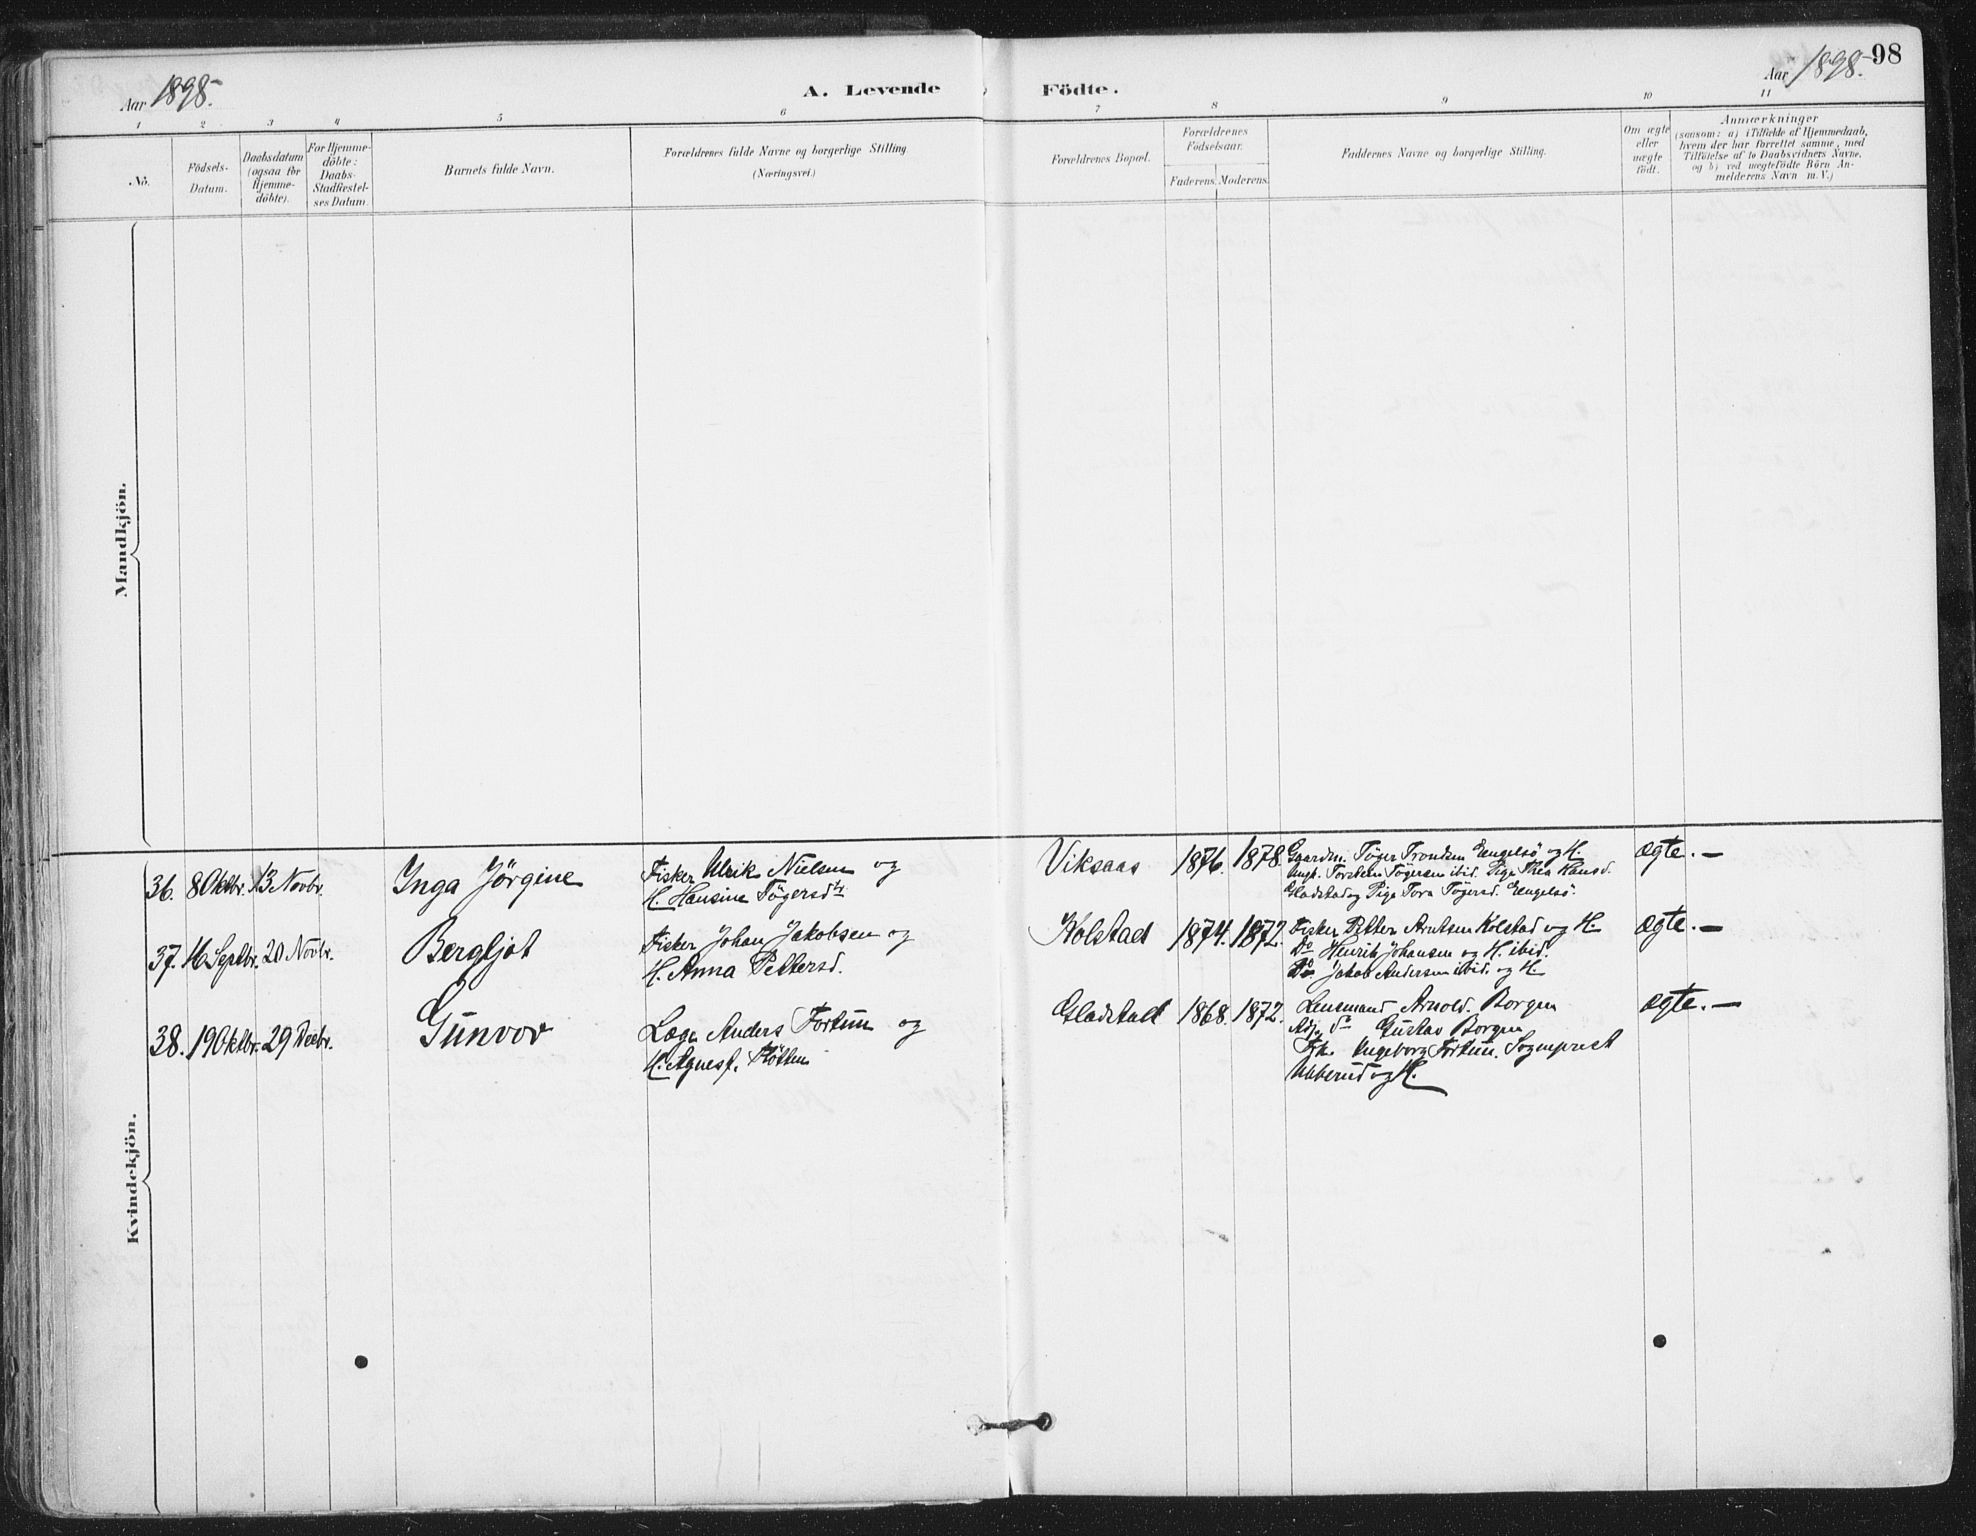 98
Aar 1898.
A. Levende Födte.
Aar 1898.
1 2 3 4 5 6 7 8 9 10 11
No.
Födsels-
Datum.
Daabsdatum
(ogsaa for
Hjemme-
döbte).
For Hjemme-
döbte:
Daabs-
Stadfæstel-
ses Datum.
Barnets fulde Navn.
Forældrenes fulde Navne og borgerlige Stilling
(Næringsvei.)
Forældrenes Bopæl.
Forældrenes
Födselsaar.
Faderens. Moderens.
Faddernes Navne og borgerlige Stilling.
Om ægte
eller
uægte
födt.
Anmærkninger
(saasom: a) i Tilfælde af Hjemmedaab,
hvem der har forrettet samme, med
Tilföielse af to Daabsvidners Navne,
og b) ved uægtefödte Börn An-
melderens Navn m. V.)
Mandkjön.
Kvindekjön.
36. 8 Oktbr. 13 Novbr. Inga Jörgine
Fisker Ulrik Nielsen og
H. Hansine Tögersdtr.
Viksaas 1876. 1878.
Gaardm. Töger Trondsen Engelsö og H.
Ungk. Torstein Tögersen ibid. Pige Thea Hansd.
Gladstad og Pige Tora Tögersd. Engelsö.
ægte. —
37. 16 Septbr. 20 Novbr. Bergljot
Fisker Johan Jakobsen og
H. Anna Pettersd.
Holstadt 1874. 1872.
Fisker Petter Arntsen Kolstad og H.
Do Henrik Johansen og H. ibid.
Do Jakob Andersen ibid. og H.
ægte. —
38. 19 Oktbr. 29 Decbr. Gunvor
Læge Anders Fortun og
H. Agnes f. Flötten
Gladstadt 1868. 1872.
Lensmand Arnold Borgen
Gustav Borgen
Frk. Ingeborg Fortun. Sogneprest
Ubberud og H.
ægte. —